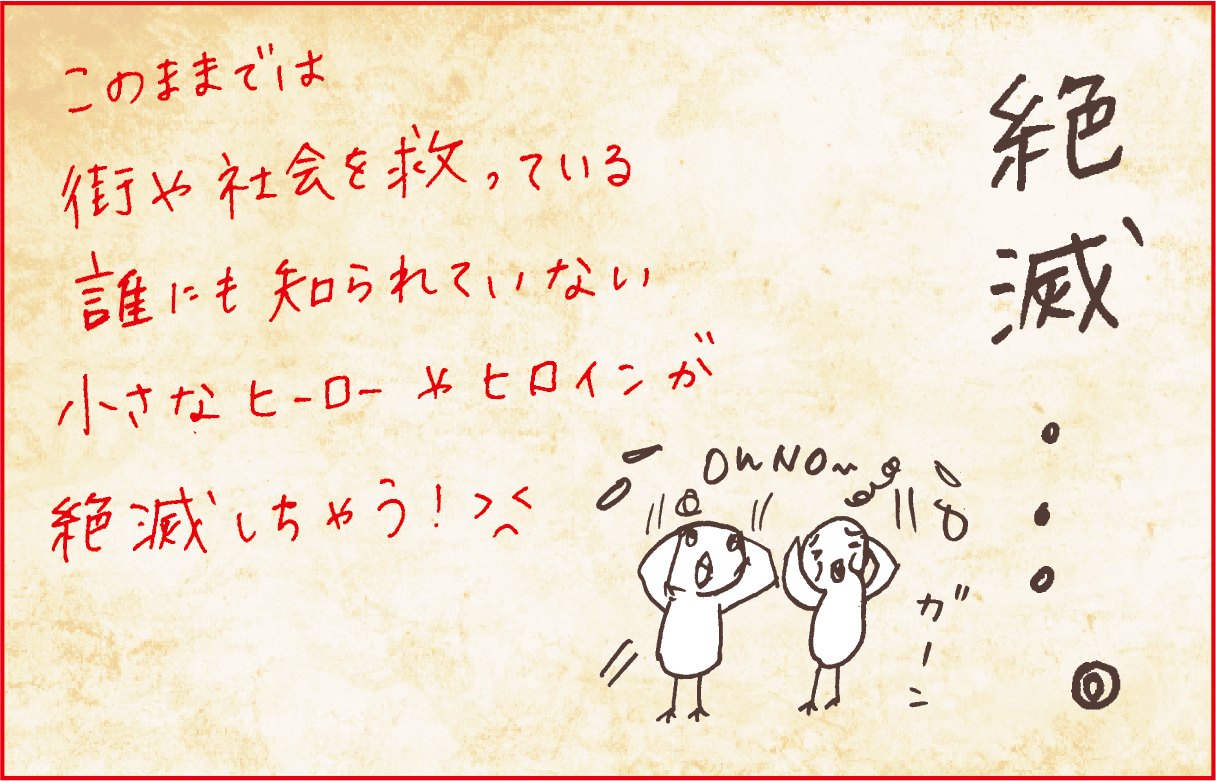 このままでは
街や社会を救っている
誰にも知られていない
小さなヒーローやヒロインが
絶滅しちゃう！><
絶滅・・・
OH NO~
ガーン